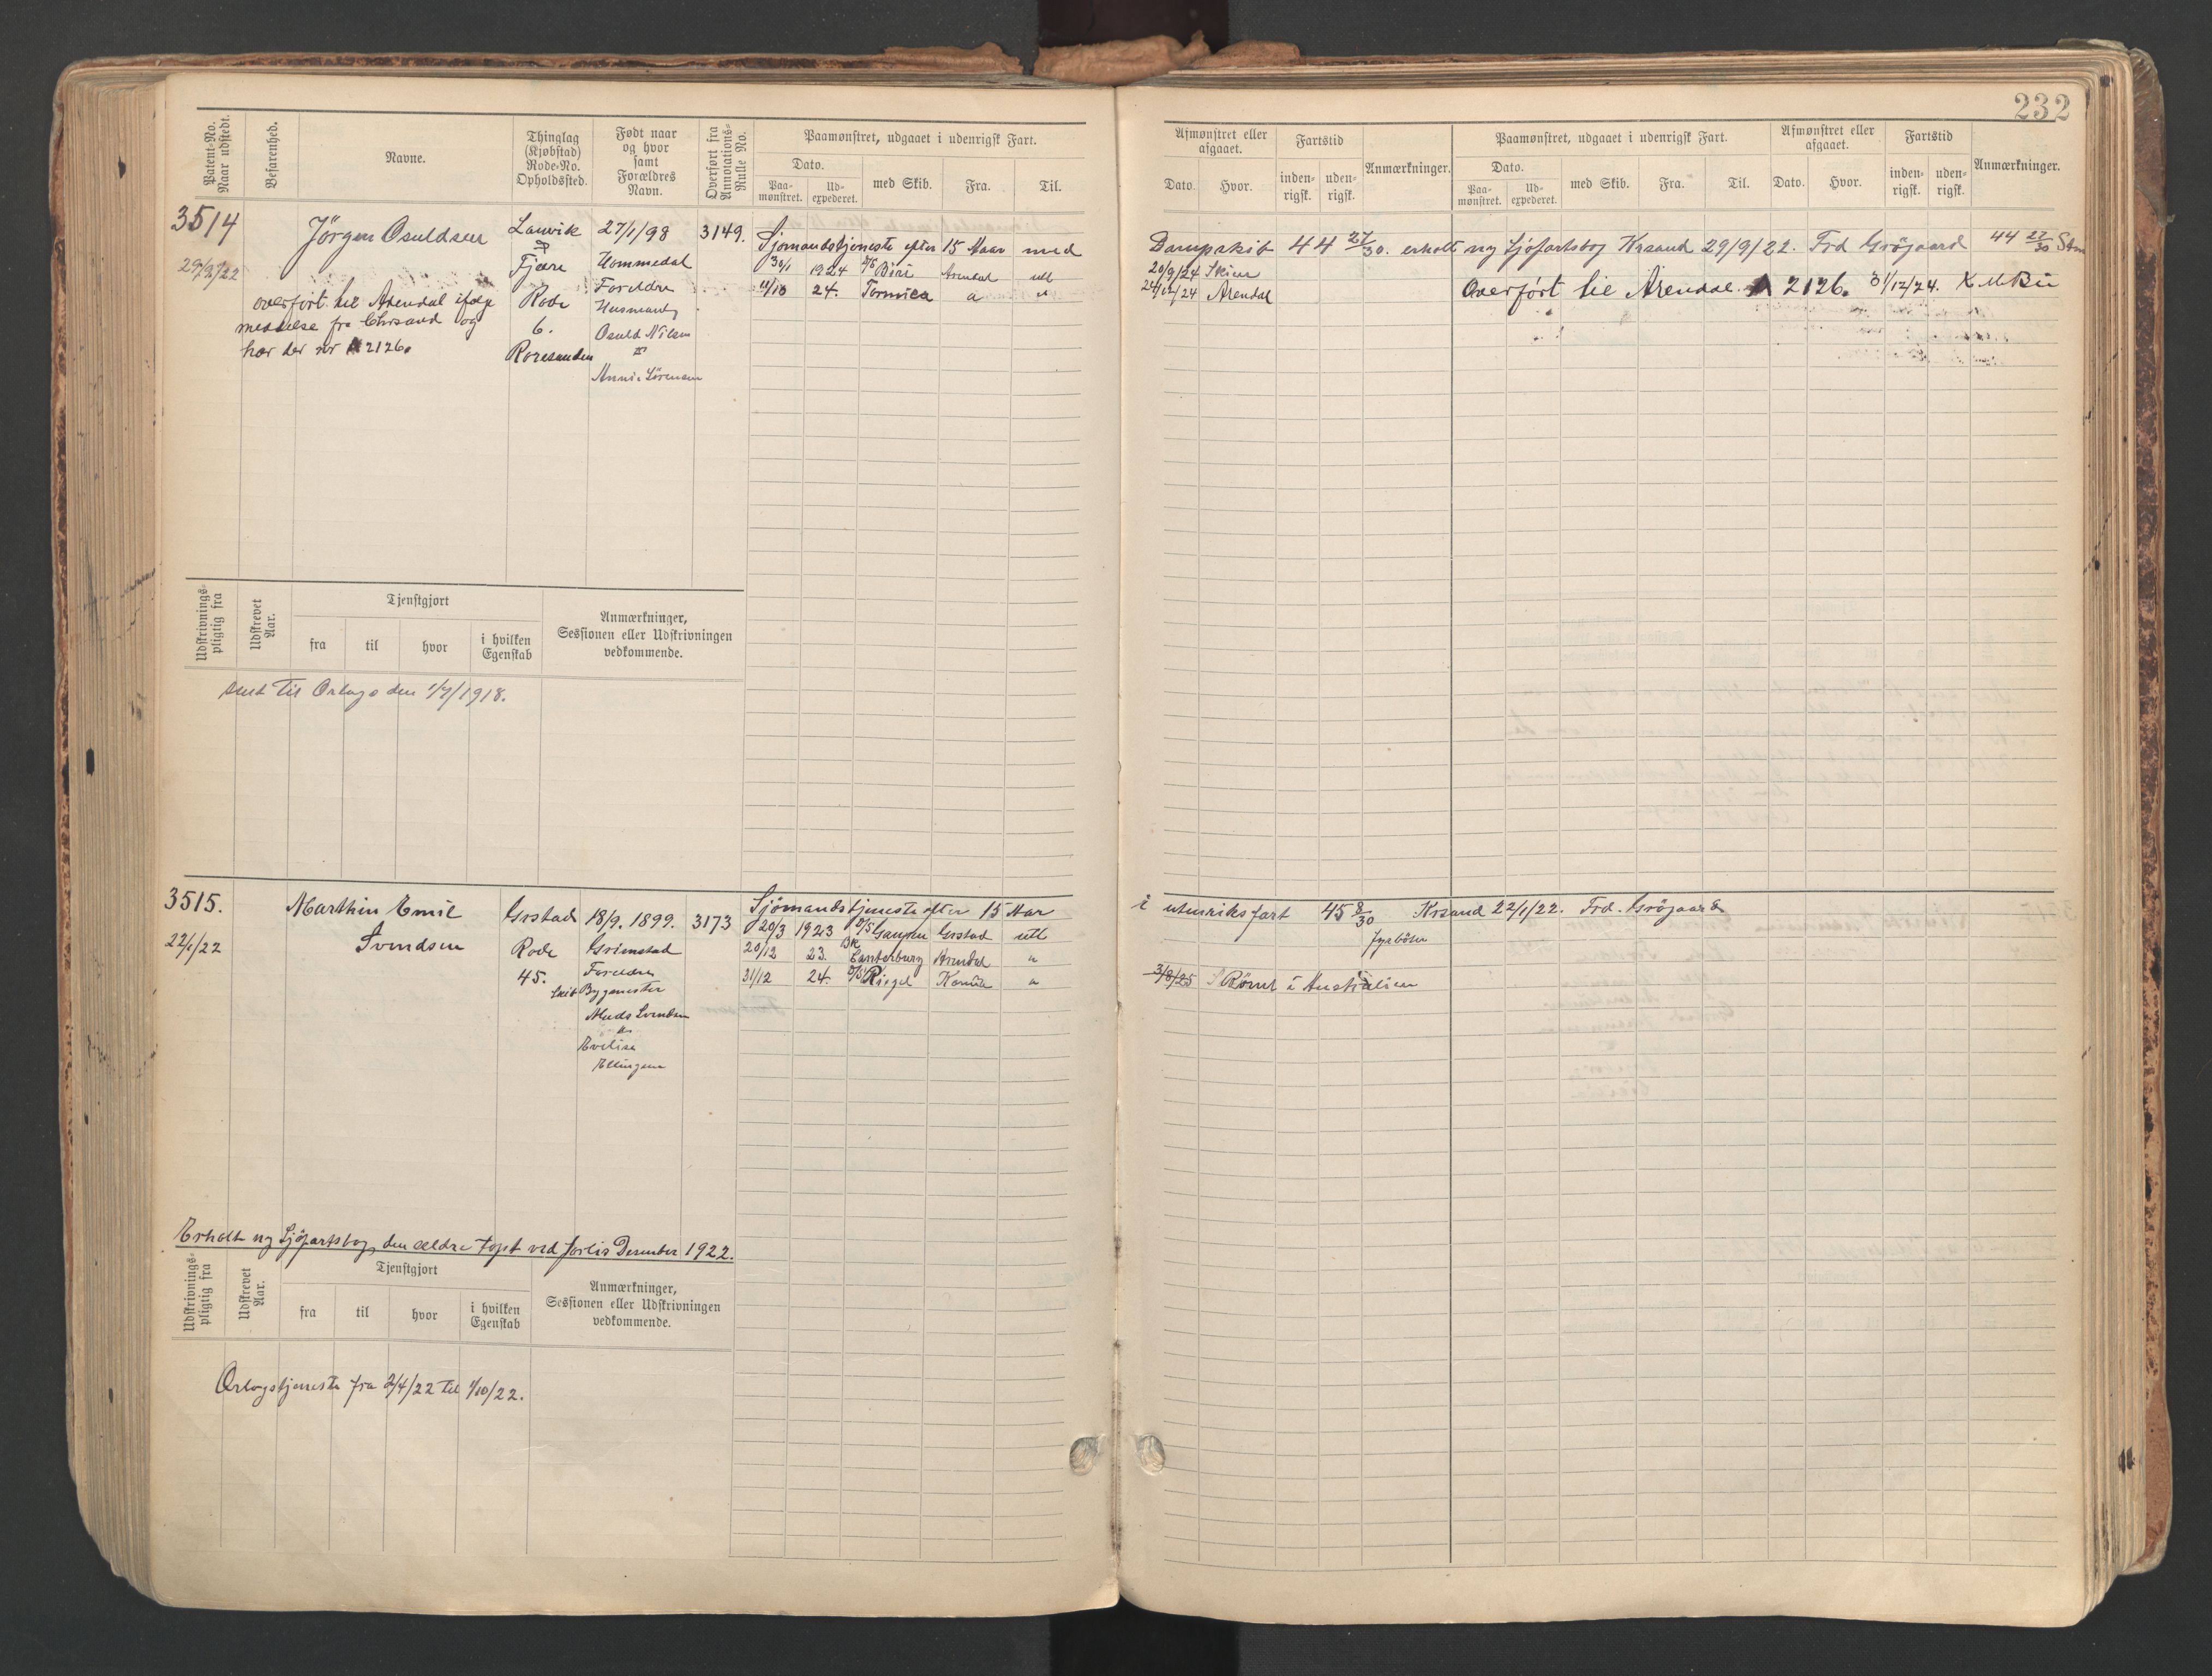 232
Patent-No. Naar udstedt.
Befarenhed.
Navne.
Thinglag (Kjøbstad) Rode-No. Opholdssted.
Født naar og hvor samt Forældres Navn.
Overført fra Annotations-Rulle No.
Paamønstret, udgaaet i udenrigsk Fart.
Dato.
Paa-mønstret.
Ud-expederet.
med Skib.
Fra.
Til.
Afmønstret eller afgaaet.
Dato.
Hvor.
Fartstid
inden-rigsk.
uden-rigsk.
Anmærkninger.
Paamønstret, udgaaet i udenrigsk Fart.
Dato.
Paa-mønstret.
Ud-expederet.
med Skib.
Fra.
Til.
Afmønstret eller afgaaet.
Dato.
Hvor.
Fartstid
inden-rigsk.
uden-rigsk.
Anmærkninger.
3514
29/9/22
Jörgen Osuldsen
overført til Arendal ifølge
meddelse fra Chrsand og
har der nr A 2126.
Landvik
Fjære
Rode
6.
Roresanden
27/1/98
Hommedal
Foreldre
Husmand
Osuld Nilsen
Anne Sörensen
3149.
Sjömandstjeneste efter 15 Aar med
30/1 1924 Biri Arendal utl
11/10 24. Tormica " "
Dampskib 44 27/30. erholdt ny Sjöfartsbog Krsand 29/9/22. Frd Grögaard 44 27/30
20/9/24 Skien
24/12/24 Arendal
Overført til Arendal A 2126. 31/12/24.
Udskrivnings-pligtig fra
Udskrevet Aar.
Tjenstgjort
fra
til
hvor
i hvilken Egenskab
Anmærkninger, Sessionen eller Udskrivningen vedkommende.
sendt til Orlogs den 1/7/1918.
3515.
22/1/22
Marthin Emil
Svendsen
Grstad
Rode
45.
18/9. 1899.
Grimstad
Foreldre
Skibsbygmester
Mads Svendsen
Evelise
Ellingsen
3173
Sjömandstjeneste efter 15 Aar
20/3 1923 D/S Gaupen Grstad utl
20/12 23. Bk Canterbury Arendal "
31/12 24. D/S Riegel "
i utenriksfart 45 8/30 Krsand 22/1/22. Frd. Grögaard
Fyrbøter
3/8/25 Römt i Australien
Erholdt ny Sjöfartsbog, den ældre tapt ved forlis Desember 1922.
Udskrivnings-pligtig fra
Udskrevet Aar.
Tjenstgjort
fra
til
hvor
i hvilken Egenskab
Anmærkninger, Sessionen eller Udskrivningen vedkommende.
Orlogstjeneste fra 2/4/22 til 1/10/22.